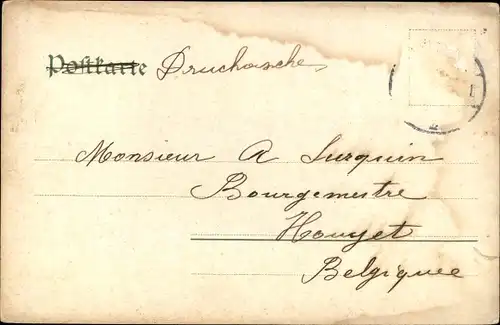 Postkarte Druckasche
Monsieur A Surquin
Bourgemestre
Houyet
Belgiquee